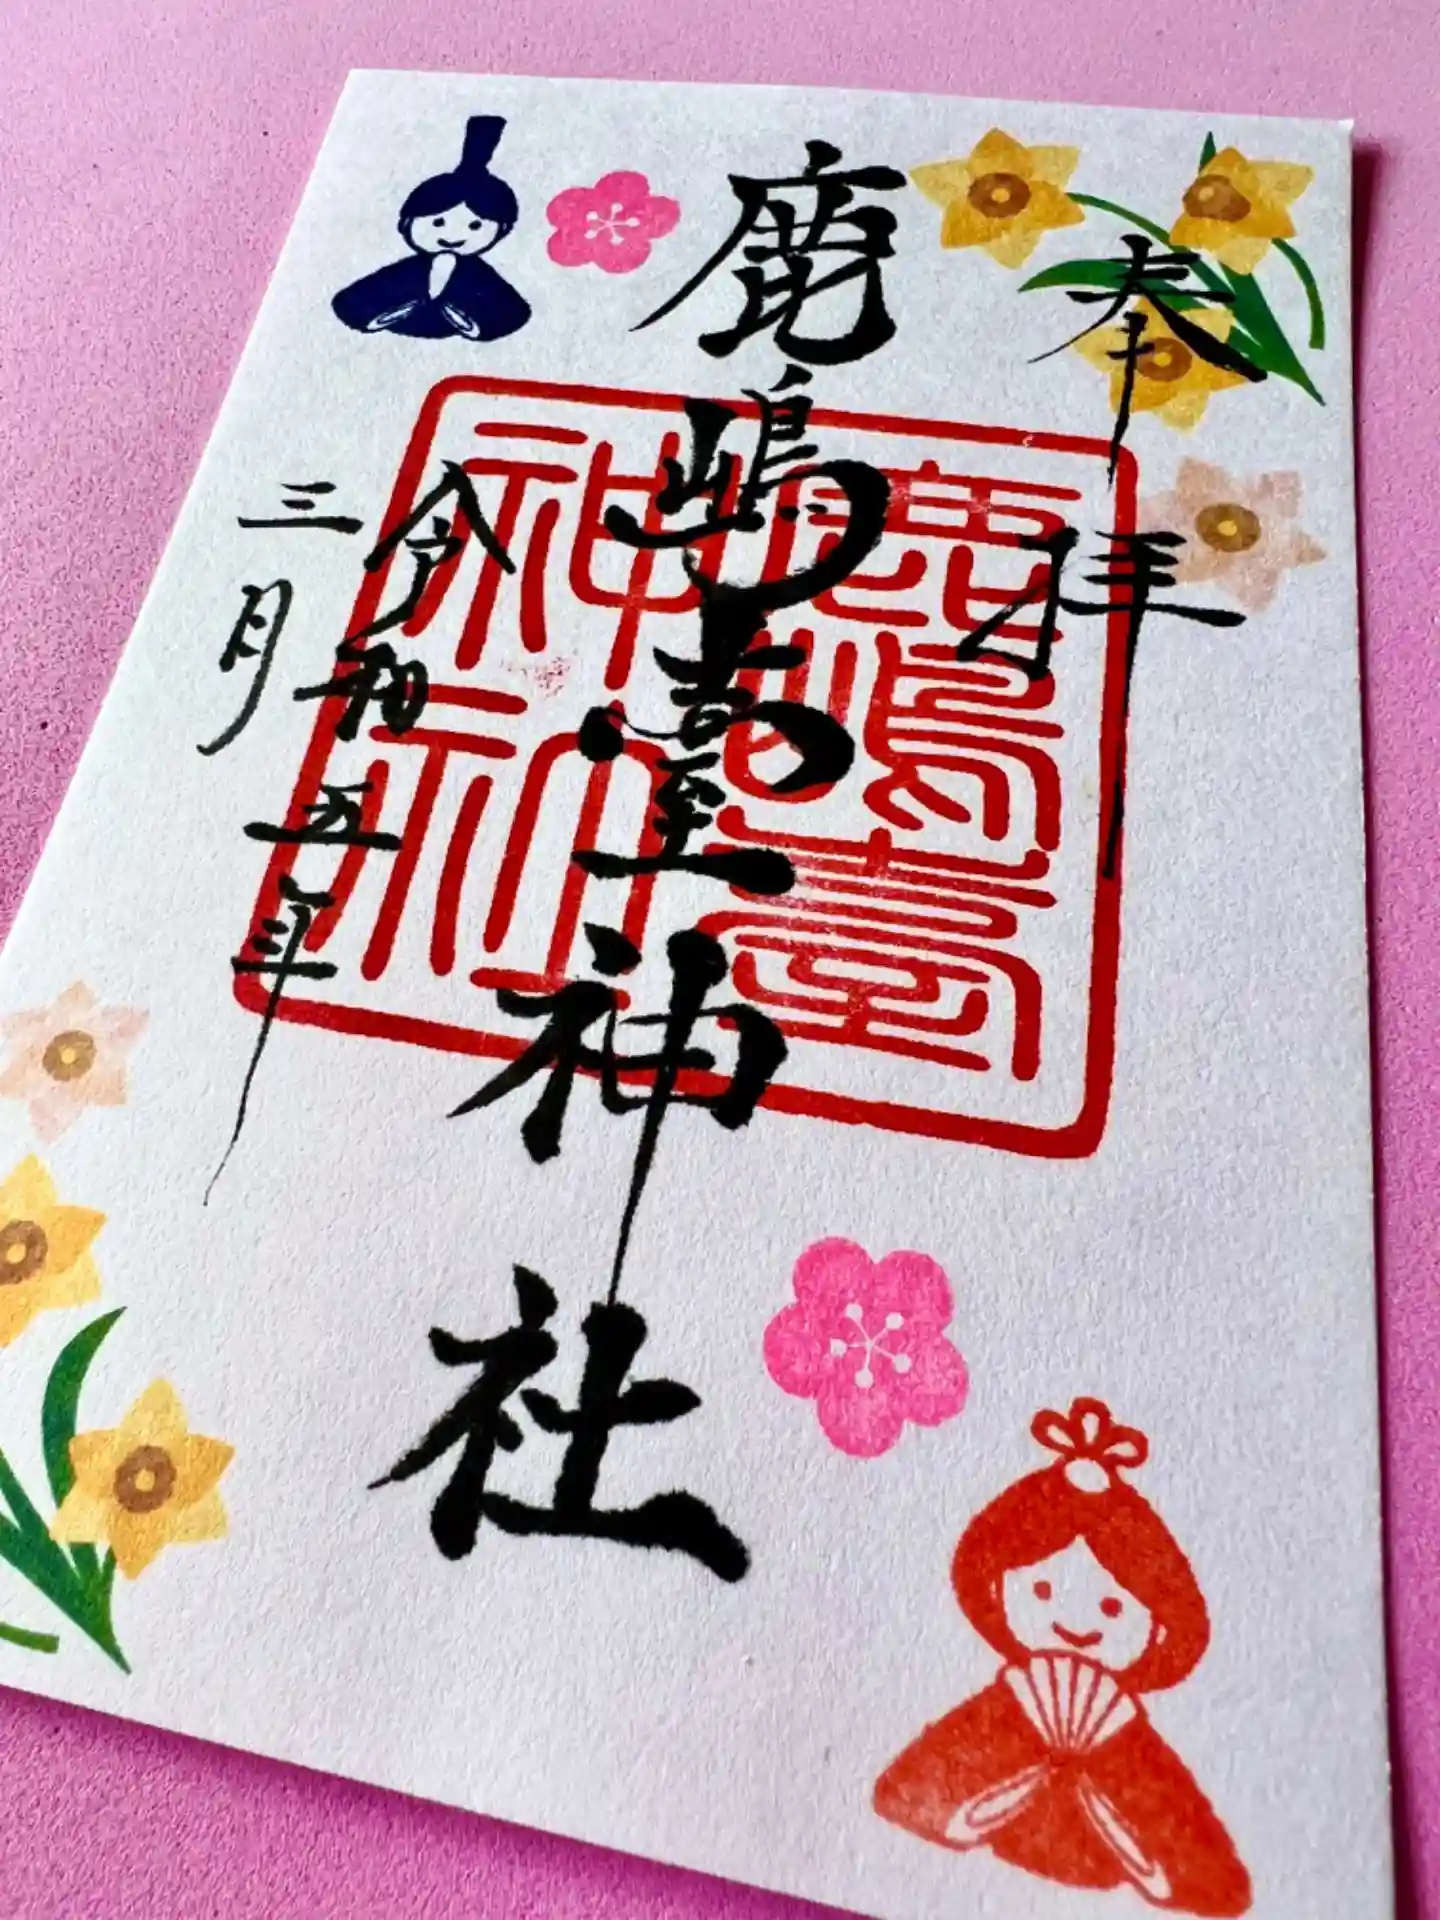 奉拝
鹿嶋臺神社
令和五年
三月
鹿嶋臺
神社